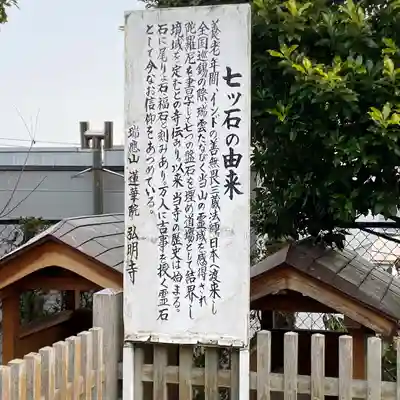 七ッ石の由来
養老年間、インドの善無畏三蔵法師、日本へ渡来し
全国巡錫の際、瑞雲たなびく当山の霊域を感得され
陀羅尼を書写して七つの盤石を埋め道場として結界し
境域を定むとの寺伝あり。以来当寺の歴史は始まる。
石に尾り石、福石の刻みあり、万人に吉事を授く霊石
として今なお信仰をあつめている。
瑞應山 蓮華院 弘明寺